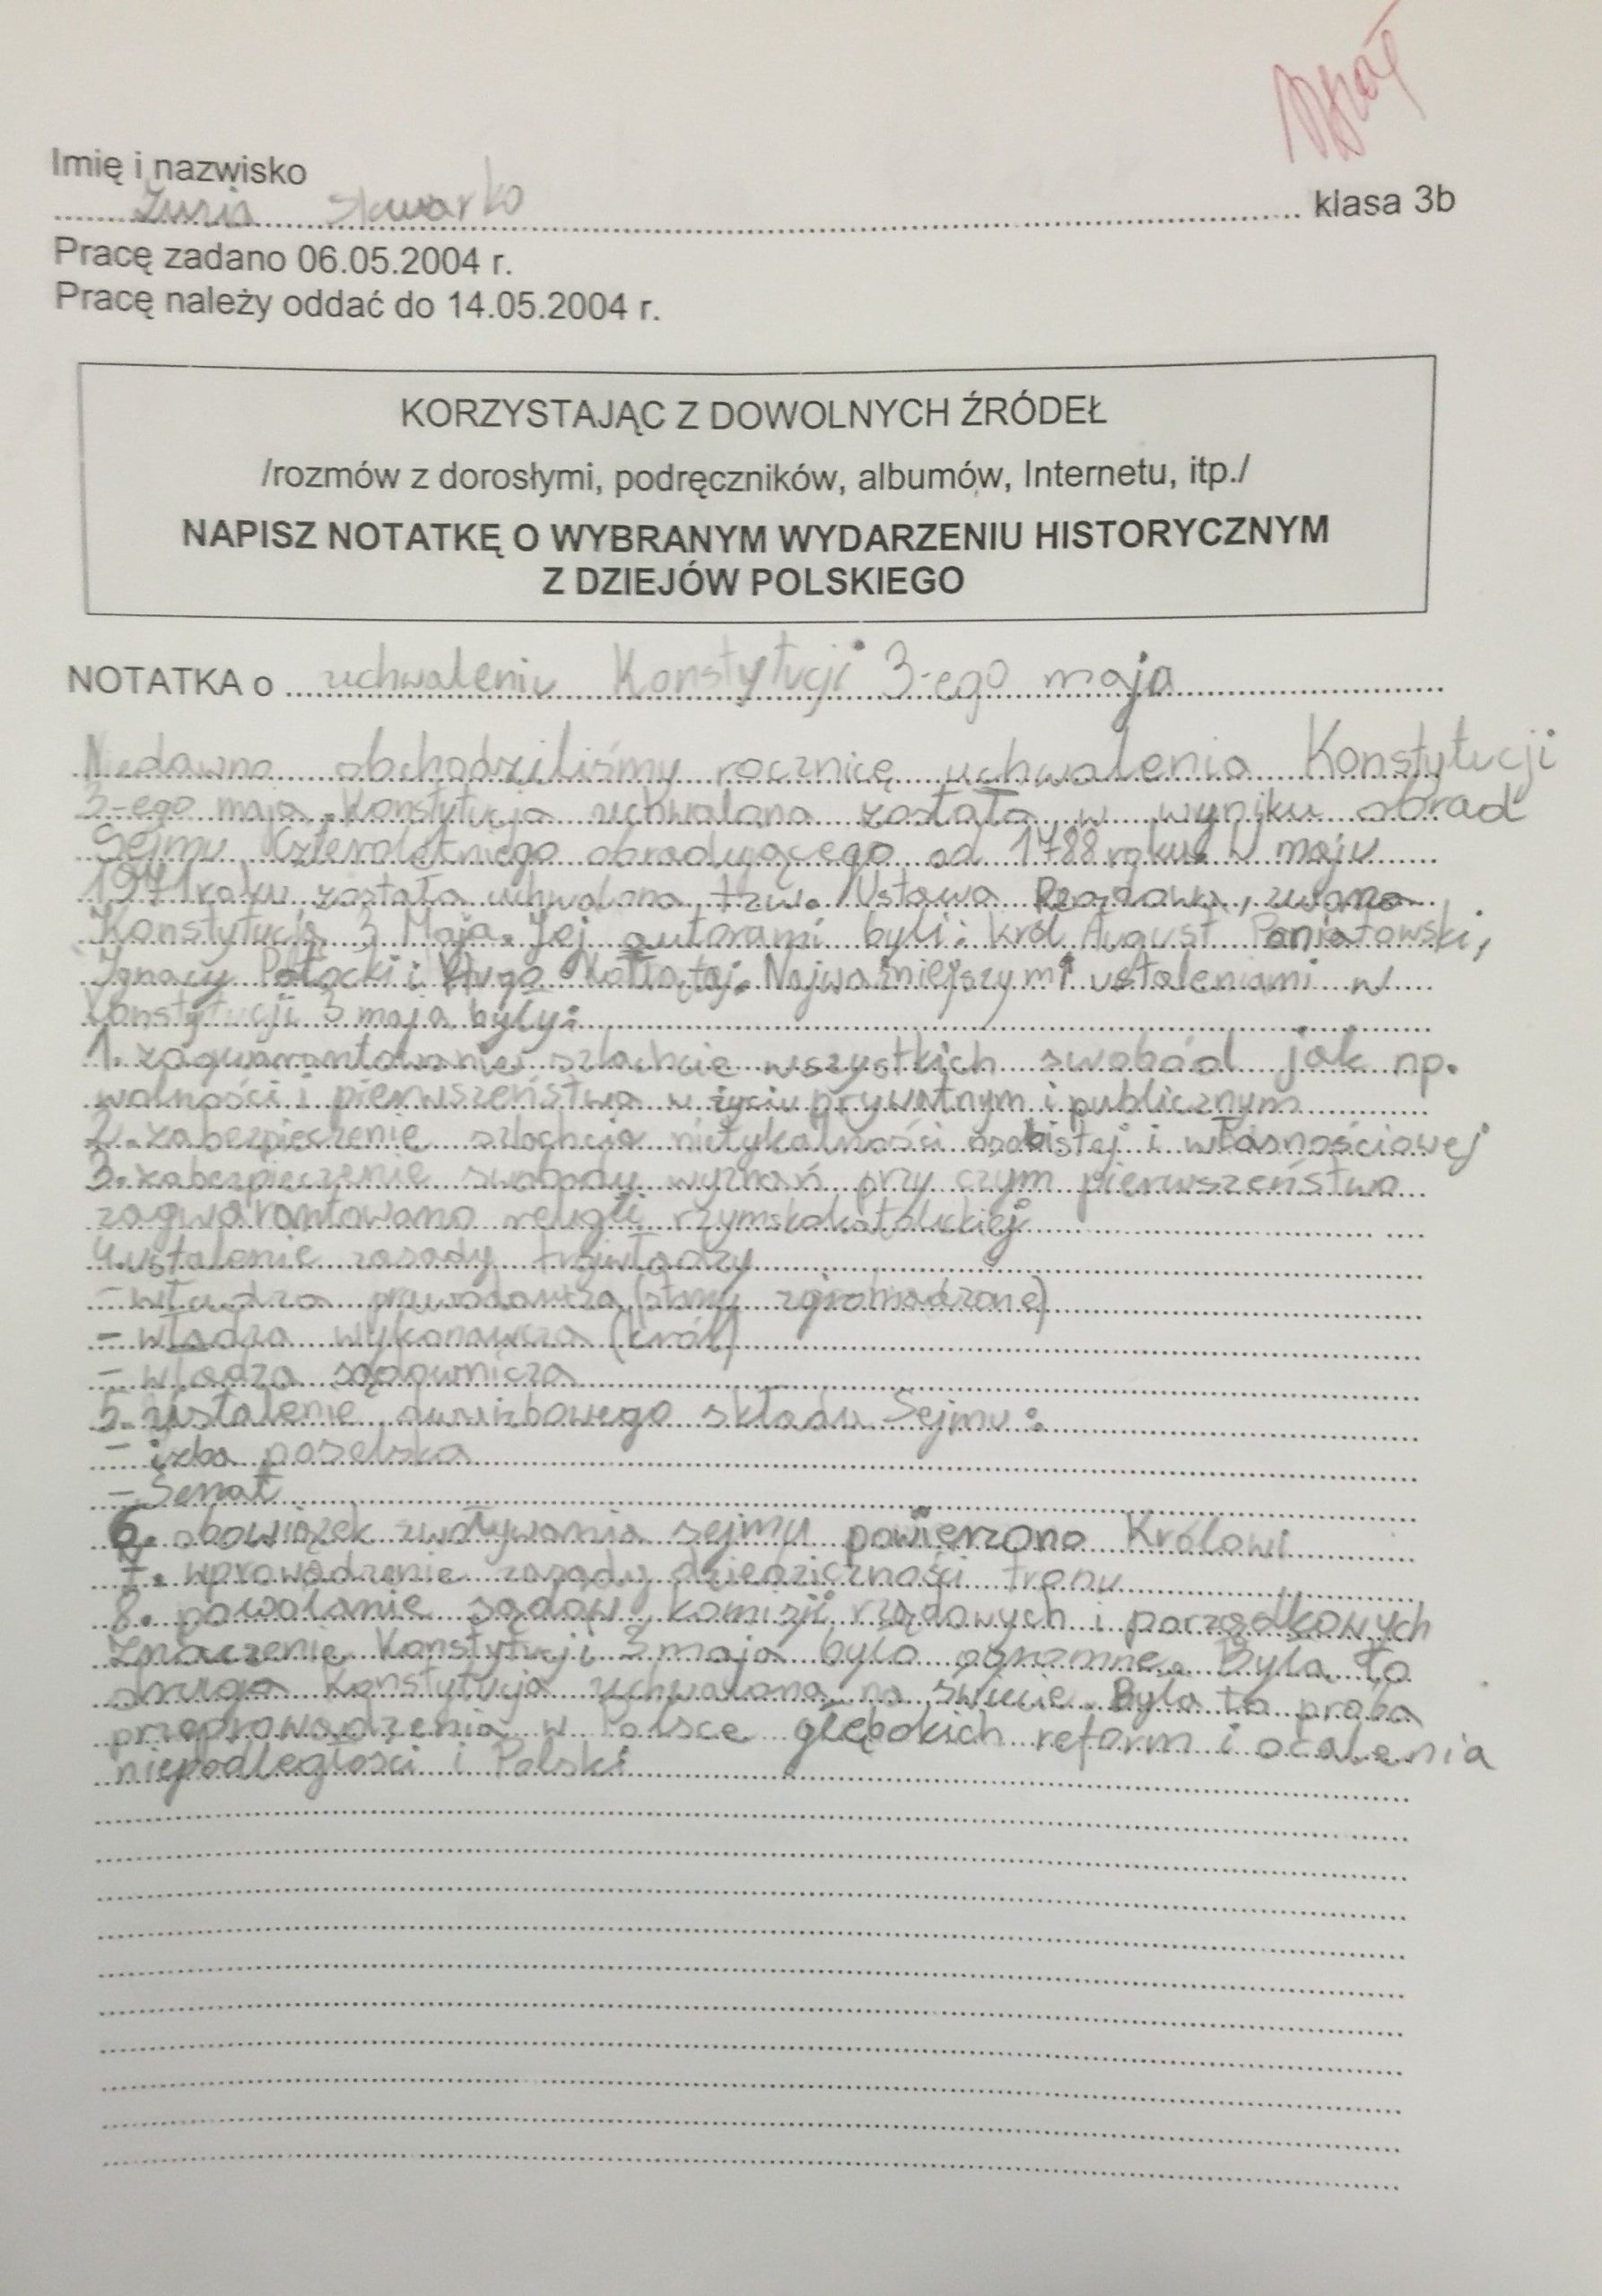 Imię i nazwisko
Zuzia Skwarko klasa 3b
Pracę zadano 06.05.2004 r.
Pracę należy oddać do 14.05.2004 r.
KORZYSTAJĄC Z DOWOLNYCH ŹRÓDEŁ
/rozmów z dorosłymi, podręczników, albumów, Internetu, itp./
NAPISZ NOTATKĘ O WYBRANYM WYDARZENIU HISTORYCZNYM
Z DZIEJÓW POLSKIEGO
NOTATKA o uchwaleniu Konstytucji 3-ego maja
Niedawno obchodziliśmy rocznicę uchwalenia Konstytucji
3-ego maja. Konstytucja uchwalona została w wyniku obrad
Sejmu Czteroletniego obradującego od 1788 roku. W maju
1971 roku została uchwalona tzw. Ustawa Rządowa, zwana
Konstytucją 3 Maja. Jej autorami byli: król August Poniatowski,
Ignacy Potocki i Hugo Kołłątaj. Najważniejszymi ustaleniami w
Konstytucji 3 maja były:
1. zagwarantowanie szlachcie wszystkich swobód jak np.
wolności i pierwszeństwa w życiu prywatnym i publicznym
2. zabezpieczenie szlachcie nietykalności osobistej i własnościowej
3. zabezpieczenie swobody wyznań przy czym pierwszeństwo
zagwarantowano religii rzymskokatolickiej
4. ustalenie zasady trójwładzy
- władza prawodawcza (stany zgromadzone)
- władza wykonawcza (król)
- władza sądownicza
5. ustalenie dwuizbowego składu Sejmu:
- izba poselska
- Senat
6. obowiązek zwoływania sejmu powierzono Królowi
7. wprowadzenie zasady dziedziczności tronu
8. powołanie sądów, komisji rządowych i porządkowych
Znaczenie Konstytucji 3 maja było ogromne. Była to
druga Konstytucja uchwalona na świecie. Była to próba
przeprowadzenia w Polsce głębokich reform i ocalenia
niepodległości i Polski